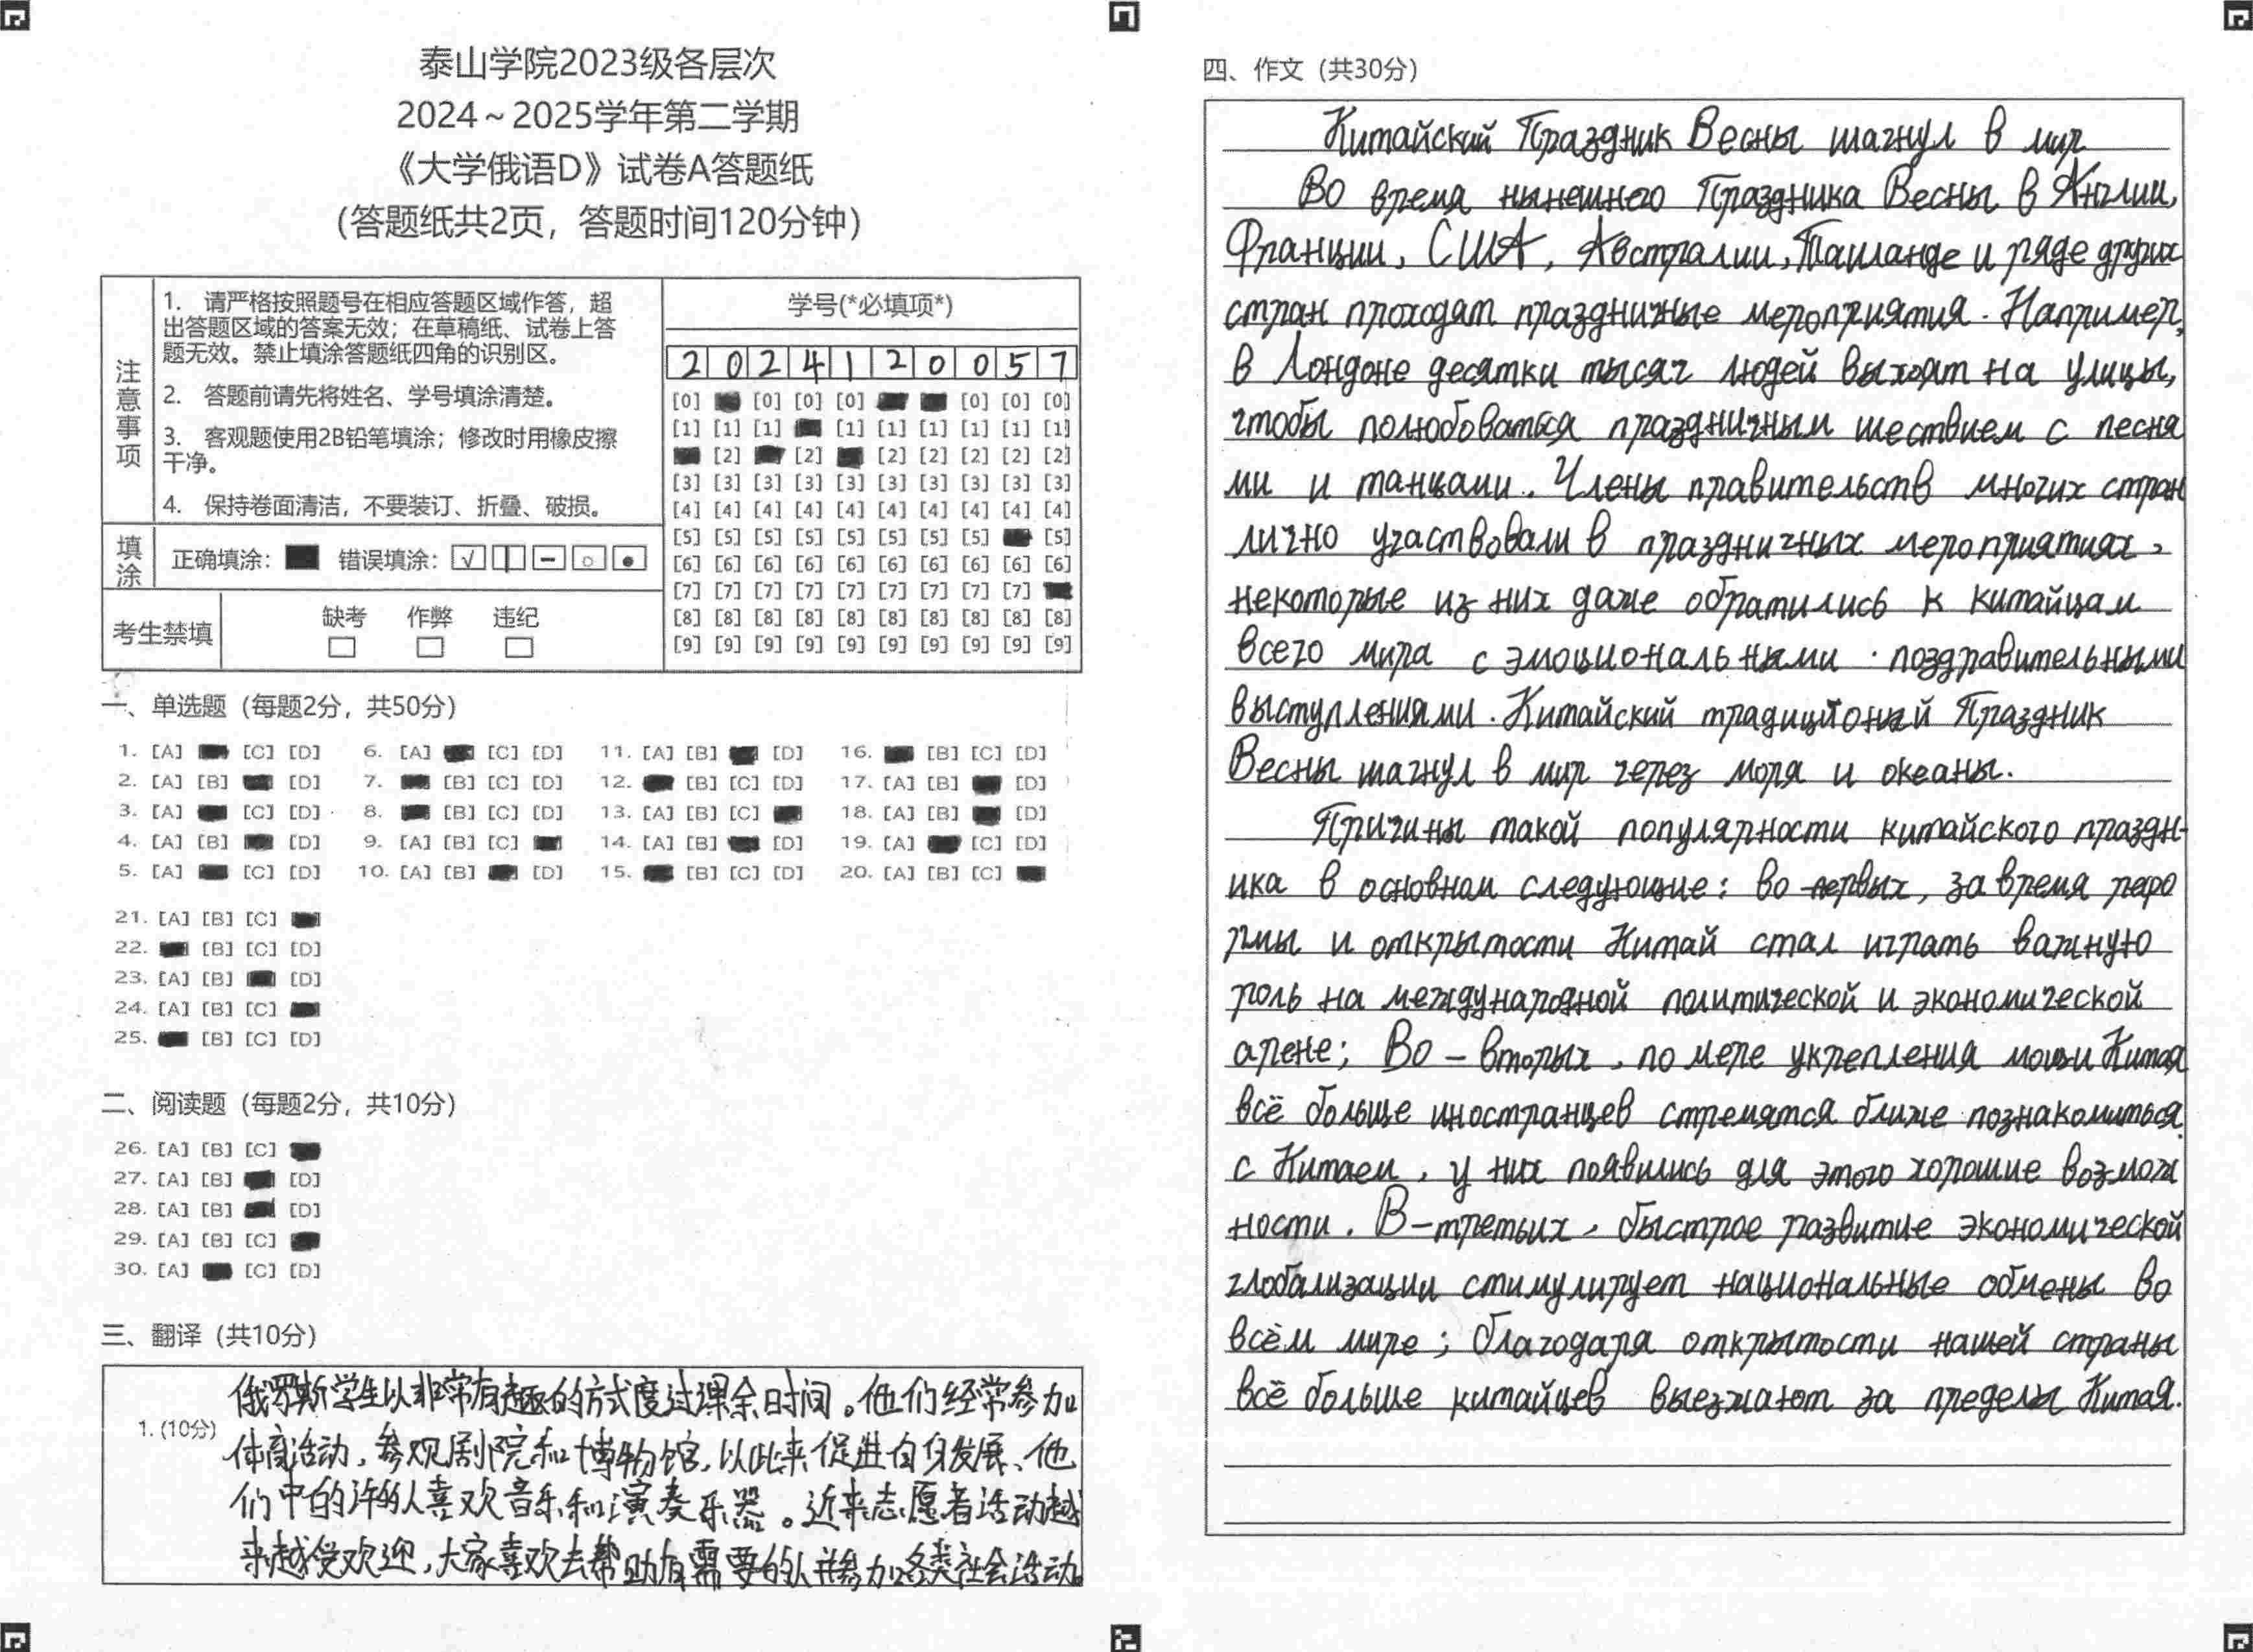 泰山学院2023级各层次
2024～2025学年第二学期
《大学俄语D》试卷A答题纸
（答题纸共2页，答题时间120分钟）
注意事项
1. 请严格按照题号在相应答题区域作答，超
出答题区域的答案无效；在草稿纸、试卷上答
题无效。禁止填涂答题纸四角的识别区。
2. 答题前请先将姓名、学号填涂清楚。
3. 客观题使用2B铅笔填涂；修改时用橡皮擦
干净。
4. 保持卷面清洁，不要装订、折叠、破损。
填涂 正确填涂： 错误填涂：
考生禁填 缺考 作弊 违纪
学号(*必填项*)
2 0 2 4 1 2 0 0 5 7
[0] [0] [0] [0] [0] [0] [0]
[1] [1] [1] [1] [1] [1] [1] [1] [1]
[2] [2] [2] [2] [2] [2] [2]
[3] [3] [3] [3] [3] [3] [3] [3] [3] [3]
[4] [4] [4] [4] [4] [4] [4] [4] [4] [4]
[5] [5] [5] [5] [5] [5] [5] [5] [5]
[6] [6] [6] [6] [6] [6] [6] [6] [6] [6]
[7] [7] [7] [7] [7] [7] [7] [7] [7]
[8] [8] [8] [8] [8] [8] [8] [8] [8] [8]
[9] [9] [9] [9] [9] [9] [9] [9] [9] [9]
一、单选题（每题2分，共50分）
1. [A] [C] [D] 6. [A] [C] [D] 11. [A] [B] [D] 16. [B] [C] [D]
2. [A] [B] [D] 7. [B] [C] [D] 12. [B] [C] [D] 17. [A] [B] [D]
3. [A] [C] [D] 8. [B] [C] [D] 13. [A] [B] [C] 18. [A] [B] [D]
4. [A] [B] [D] 9. [A] [B] [C] 14. [A] [B] [D] 19. [A] [C] [D]
5. [A] [C] [D] 10. [A] [B] [D] 15. [B] [C] [D] 20. [A] [B] [C]
21. [A] [B] [C]
22. [B] [C] [D]
23. [A] [B] [D]
24. [A] [B] [C]
25. [B] [C] [D]
二、阅读题（每题2分，共10分）
26. [A] [B] [C]
27. [A] [B] [D]
28. [A] [B] [D]
29. [A] [B] [C]
30. [A] [C] [D]
三、翻译（共10分）
1. (10分)
俄罗斯学生以非常有趣的方式度过课余时间。他们经常参加
体育活动，参观剧院和博物馆，以此来促进自身发展、他
们中的许多人喜欢音乐和演奏乐器。近来志愿者活动越
来越受欢迎，大家喜欢去帮助有需要的人并参加各类社会活动。
四、作文（共30分）
Китайский Праздник Весны шагнул в мир
Во время нынешнего Праздника Весны в Англии,
Франции, США, Австралии, Таиланде и ряде других
стран проходят праздничные мероприятия. Например,
в Лондоне десятки тысяч людей выходят на улицы,
чтобы полюбоваться праздничным шествием с песня
ми и танцами. Члены правительств многих стран
лично участвовали в праздничных мероприятиях,
некоторые из них даже обратились к китайцам
всего мира с эмоциональными поздравительными
выступлениями. Китайский традиционый Праздник
Весны шагнул в мир через моря и океаны.
Причины такой популярности китайского праздн-
ика в основном следующие: во-первых, за время рефо
рмы и открытости Китай стал играть важную
роль на международной политической и экономической
арене; Во-вторых, по мере укрепления мощи Китая
всё больше иностранцев стремятся ближе познакомиться
с Китаем, у них появились для этого хорошие возмож
ности. В-третьих, быстрое развитие экономической
глобализации стимулирует национальные обмены во
всём мире; благодаря открытости нашей страны
всё больше китайцев выезжают за пределы Китая.